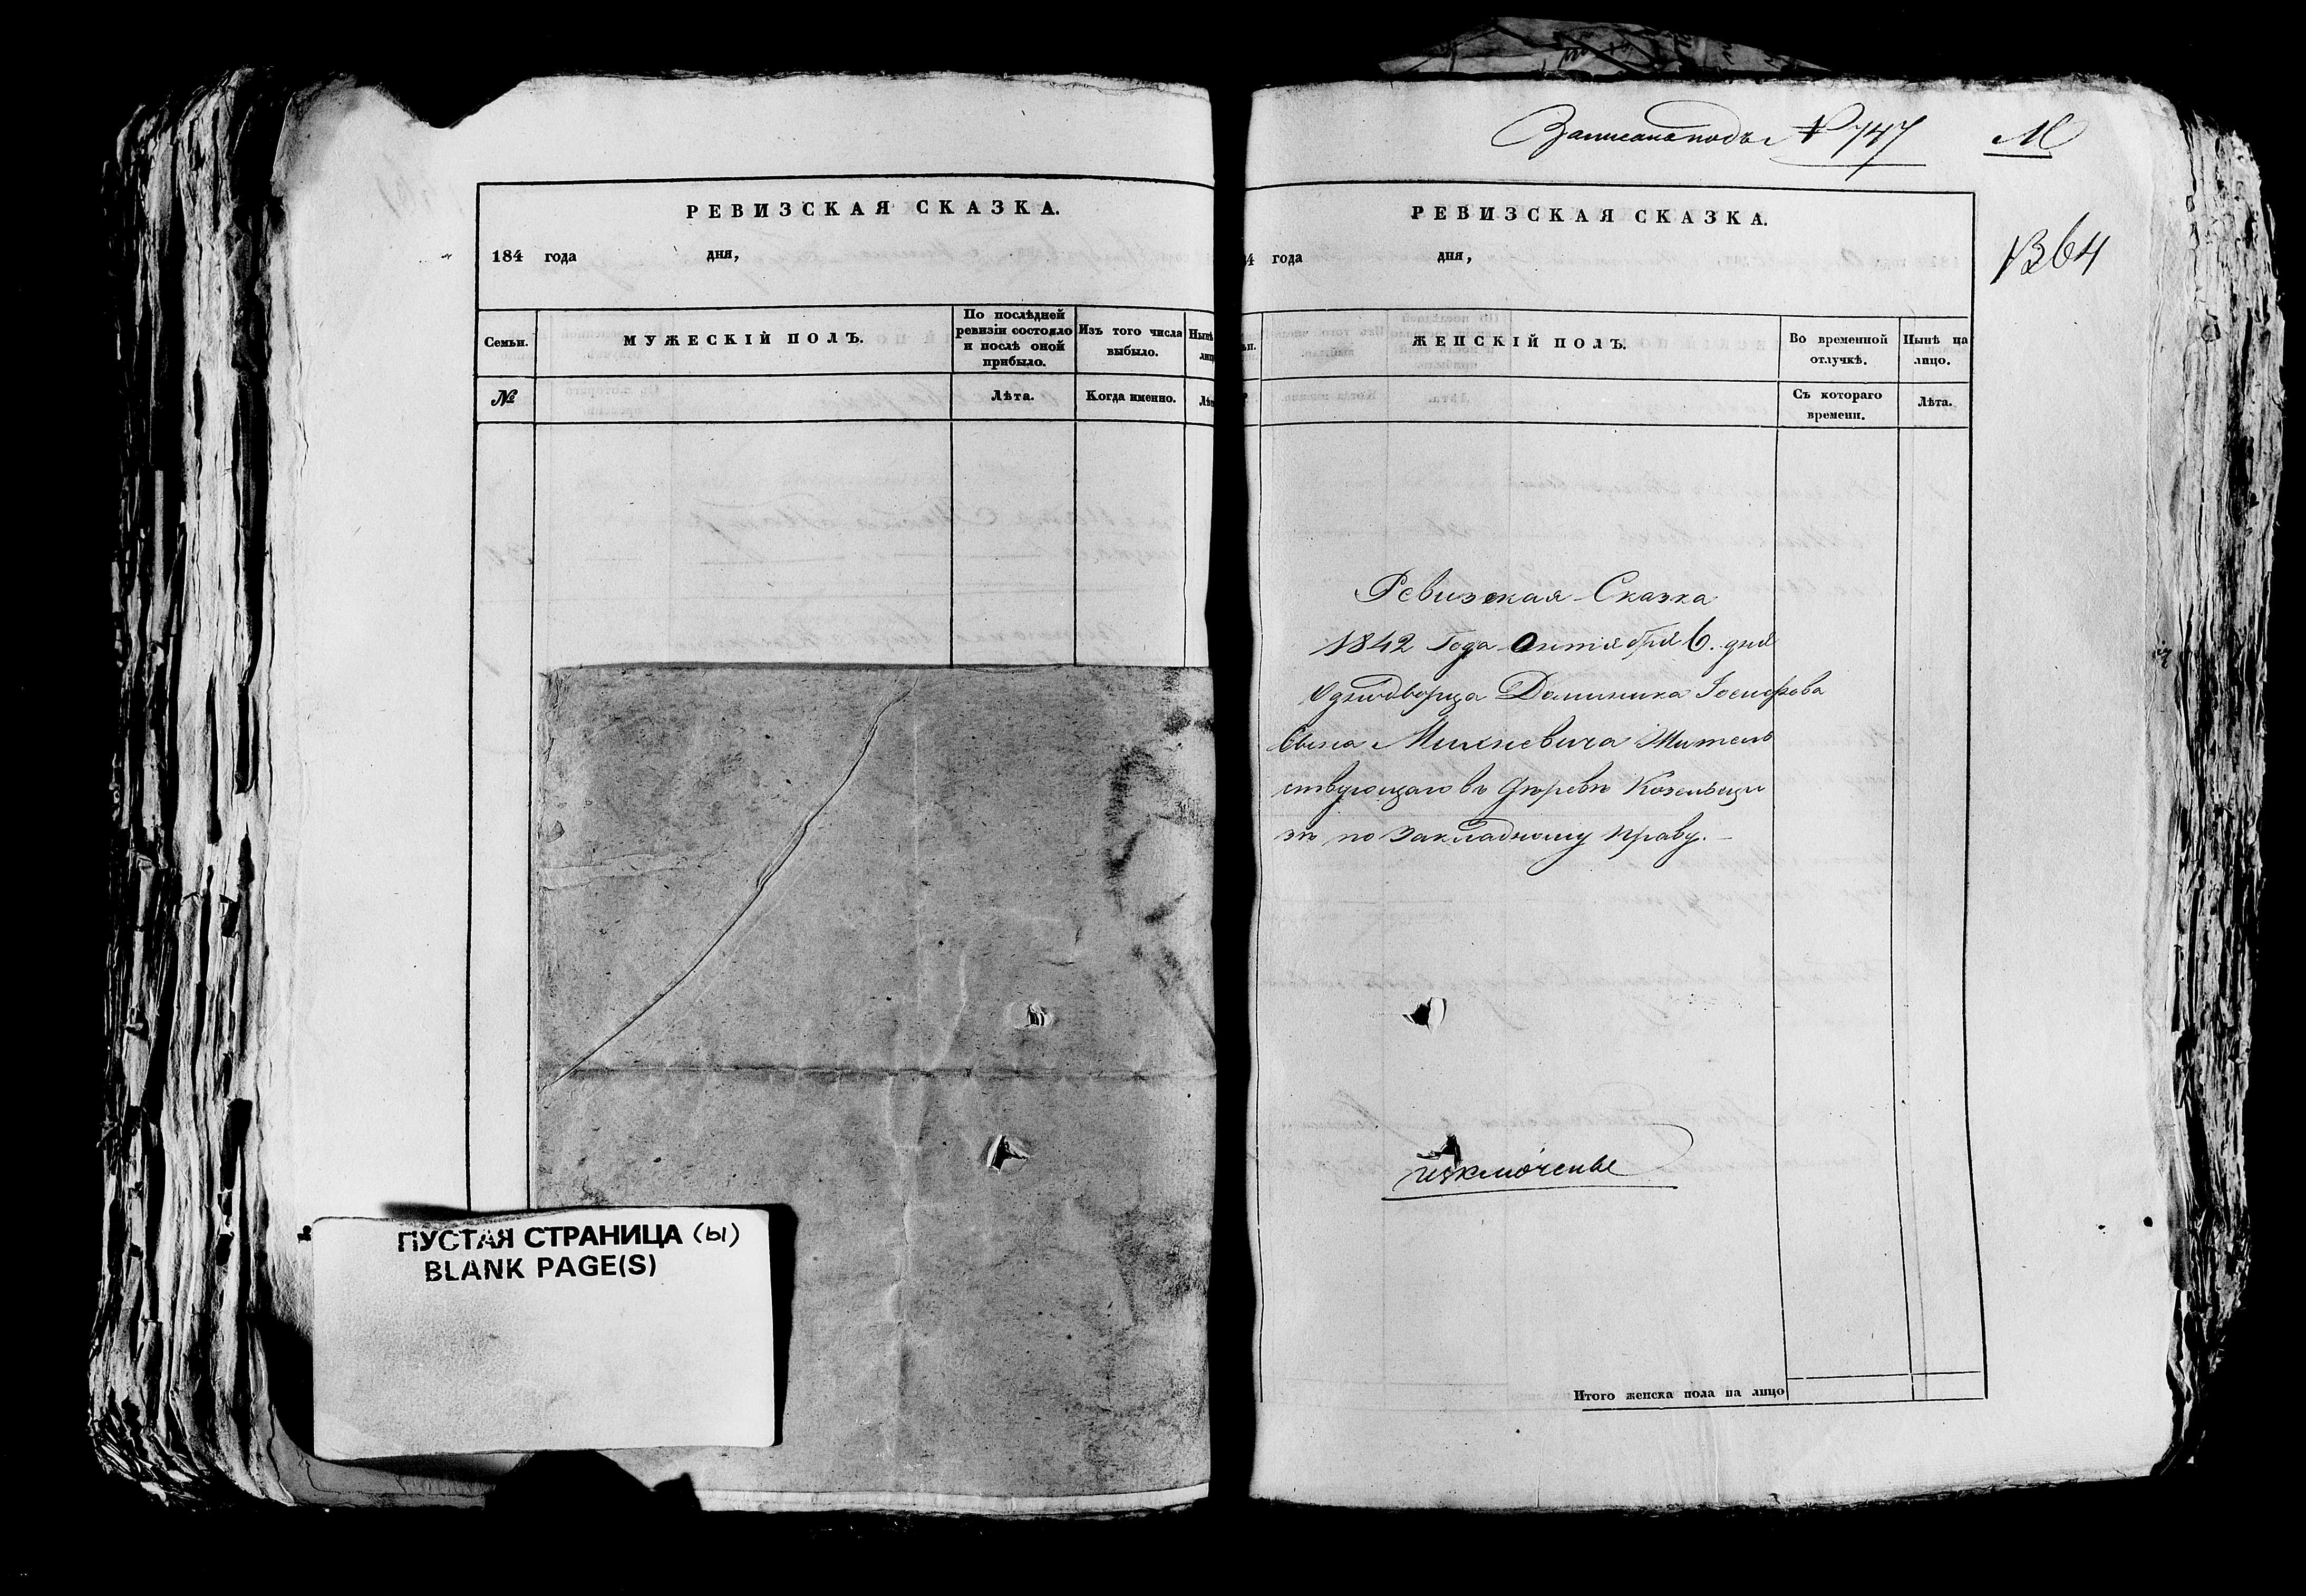 РЕВИЗСКАЯ СКАЗКА.
184 года дня,
Семьи.
МУЖЕСКІЙ ПОЛЪ.
По послѣдней
ревизіи состояло
и послѣ оной
прибыло.
Изъ того числа
выбыло.
Нынѣ
лиц
№
Лѣта.
Когда именно.
Лѣт
ПУСТАЯ СТРАНИЦА (Ы)
BLANK PAGE(S)
Записана подъ № 747
М
1364
РЕВИЗСКАЯ СКАЗКА.
4 года дня,
ЖЕНСКІЙ ПОЛЪ.
Во временной
отлучкѣ.
Нынѣ на
лицо.
Съ котораго
времени.
Лѣта.
Ревизская Сказка
1842 Года Октября 6. дня
Однодворца Доминика Іосифова
Сына Михневича Житель
ствующаго въ
по Закладному праву.
изключенье
Итого женска пола на лицо